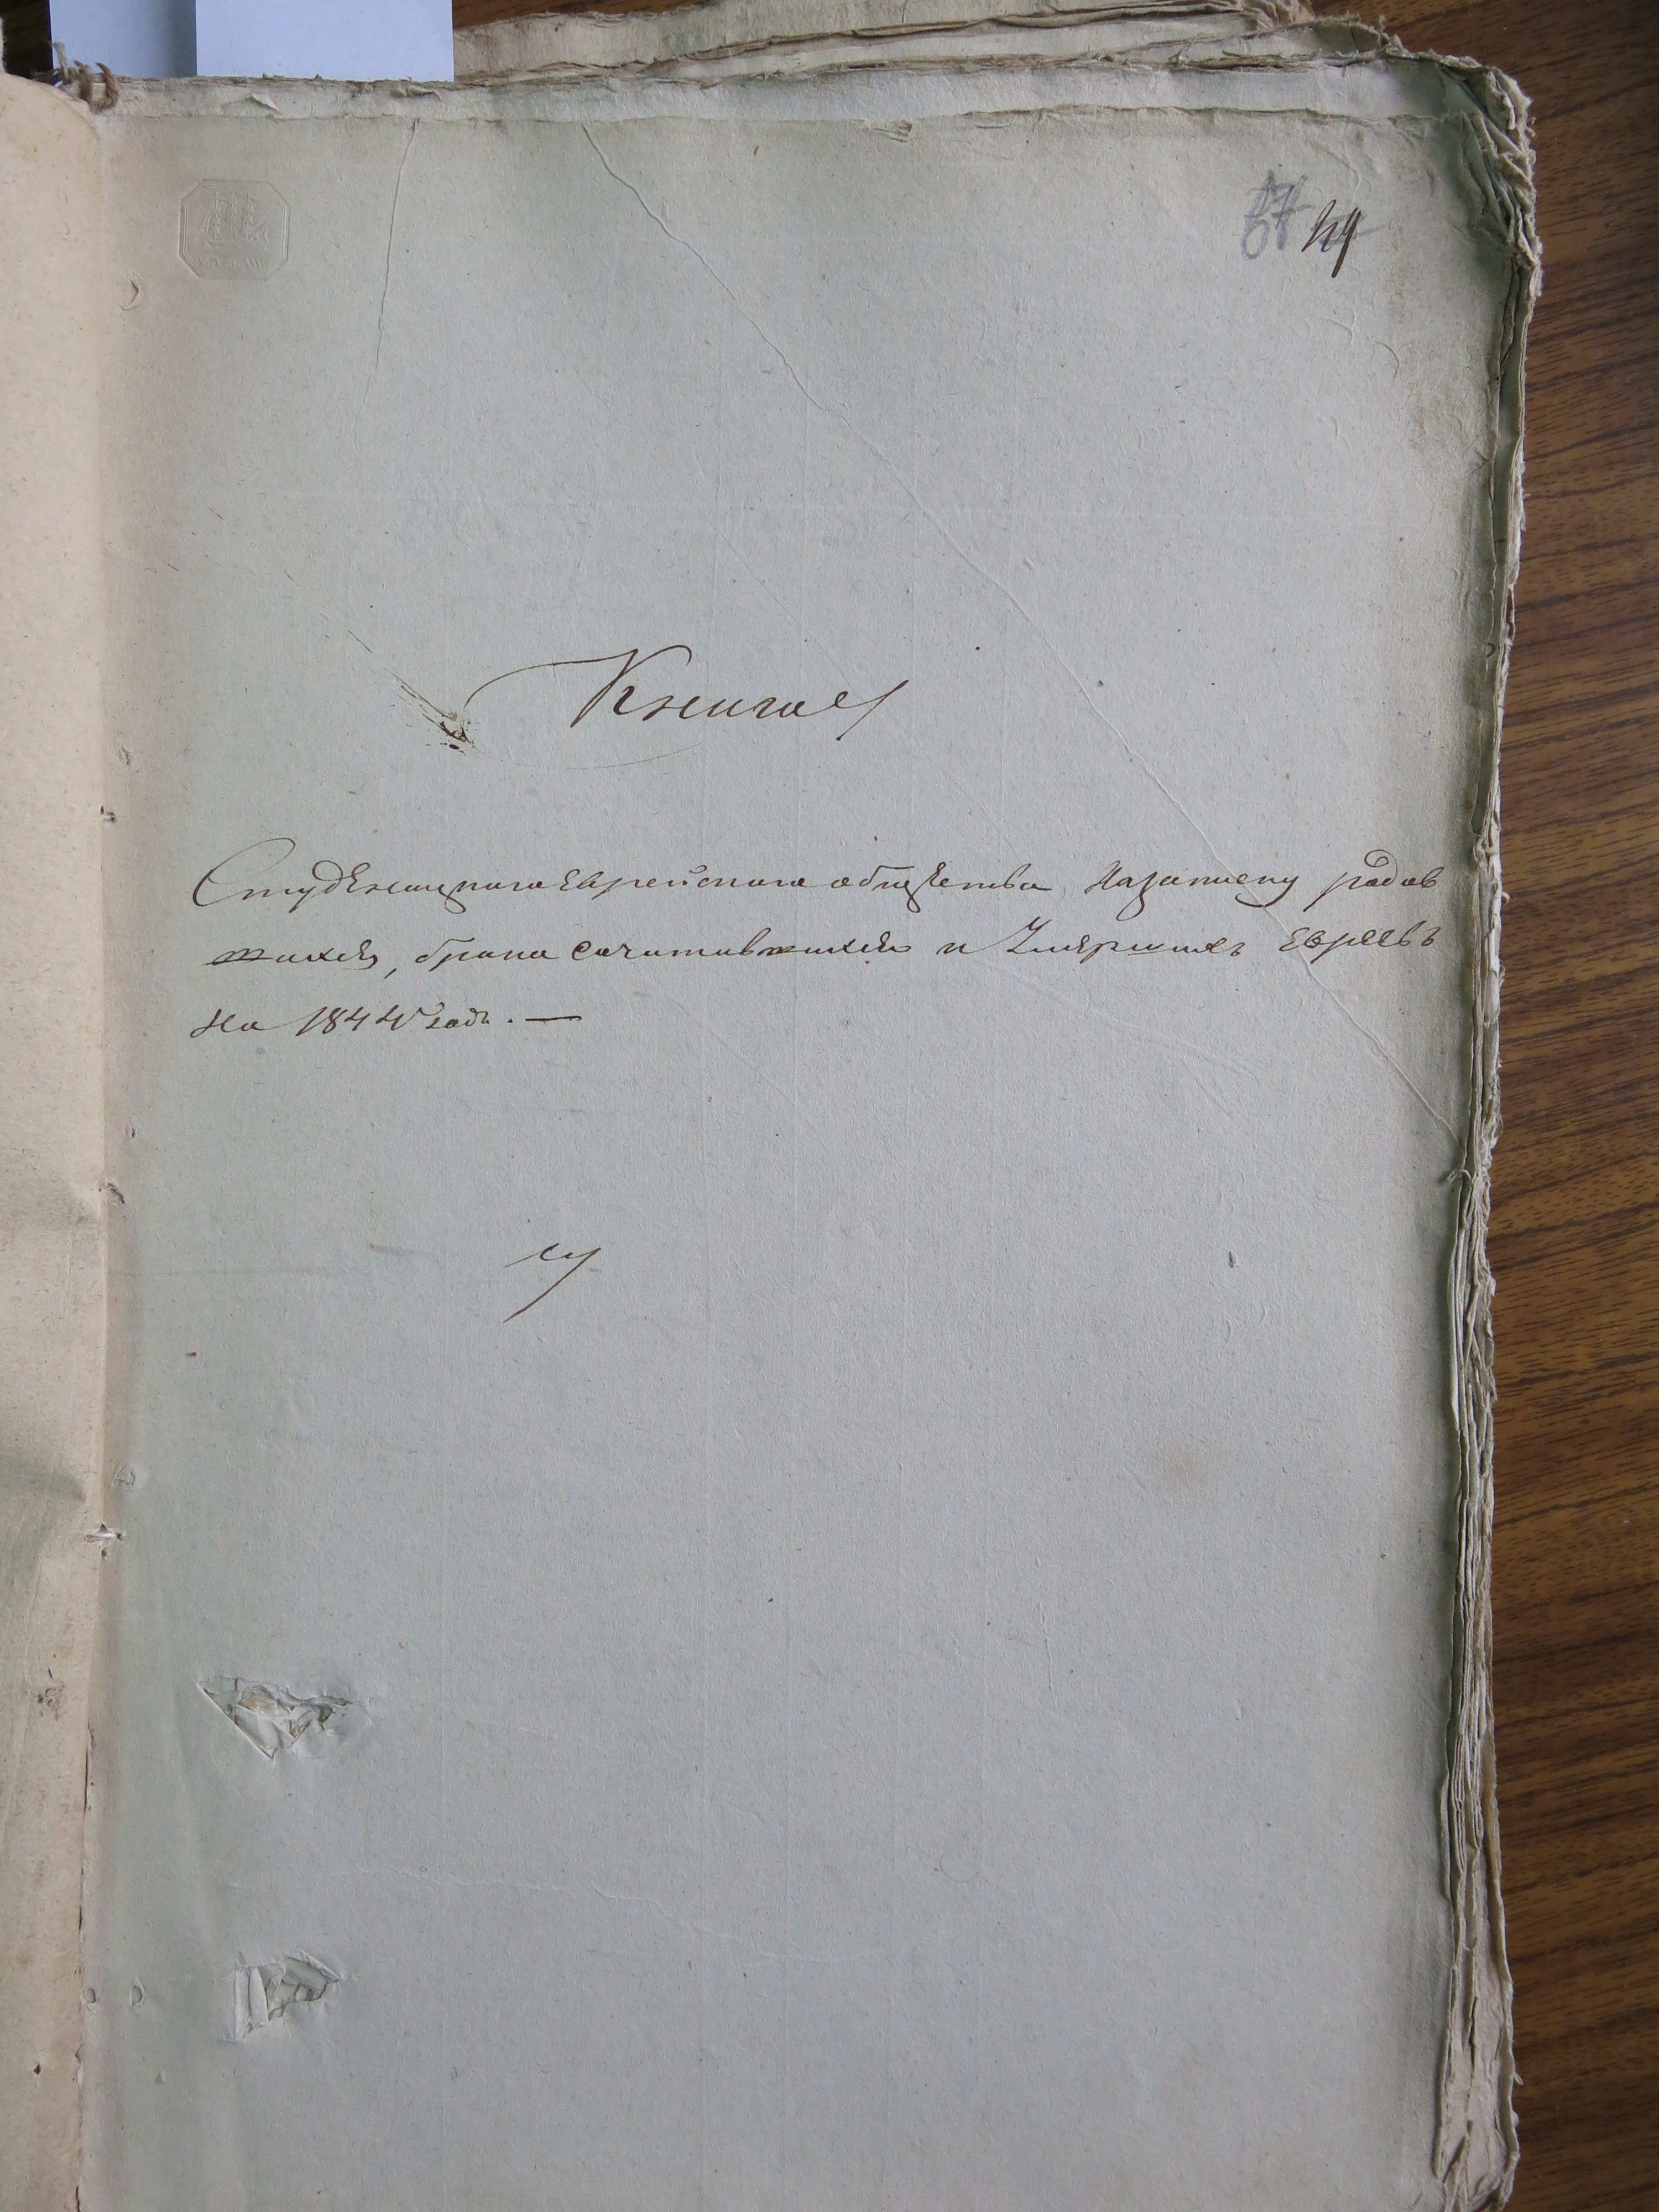 49
Книга
Студеницкаго Еврейскаго общества на записку родив
шихся, брако сочитавшихся и Умершихъ Евреевъ
На 1844й годъ. —